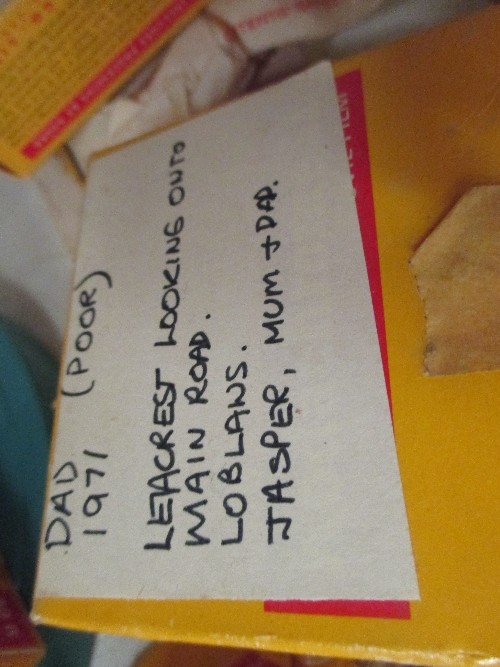 DAD
1971 (POOR)
LEACREST LOOKING ONTO
MAIN ROAD.
LOBLAWS.
JASPER, MUM + DAD.